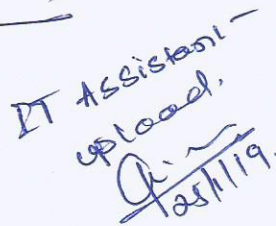 IT Assistant -
upload.
25/1/19.